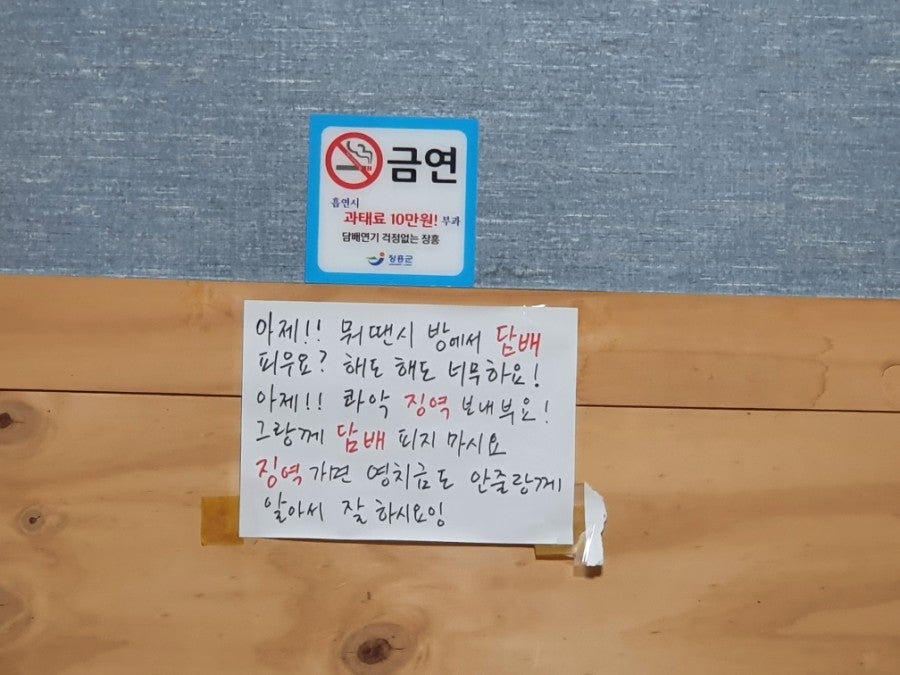 금연
흡연시
과태료 10만원! 부과
담배연기 걱정없는 장흥
장흥군
아제!! 뭐땐시 방에서 담배
피우요? 해도 해도 너무하요!
아제!! 콰악 징역 보내부요!
그랑께 담배 피지 마시요
징역 가면 영치금도 안줄랑께
알아서 잘 하시요잉